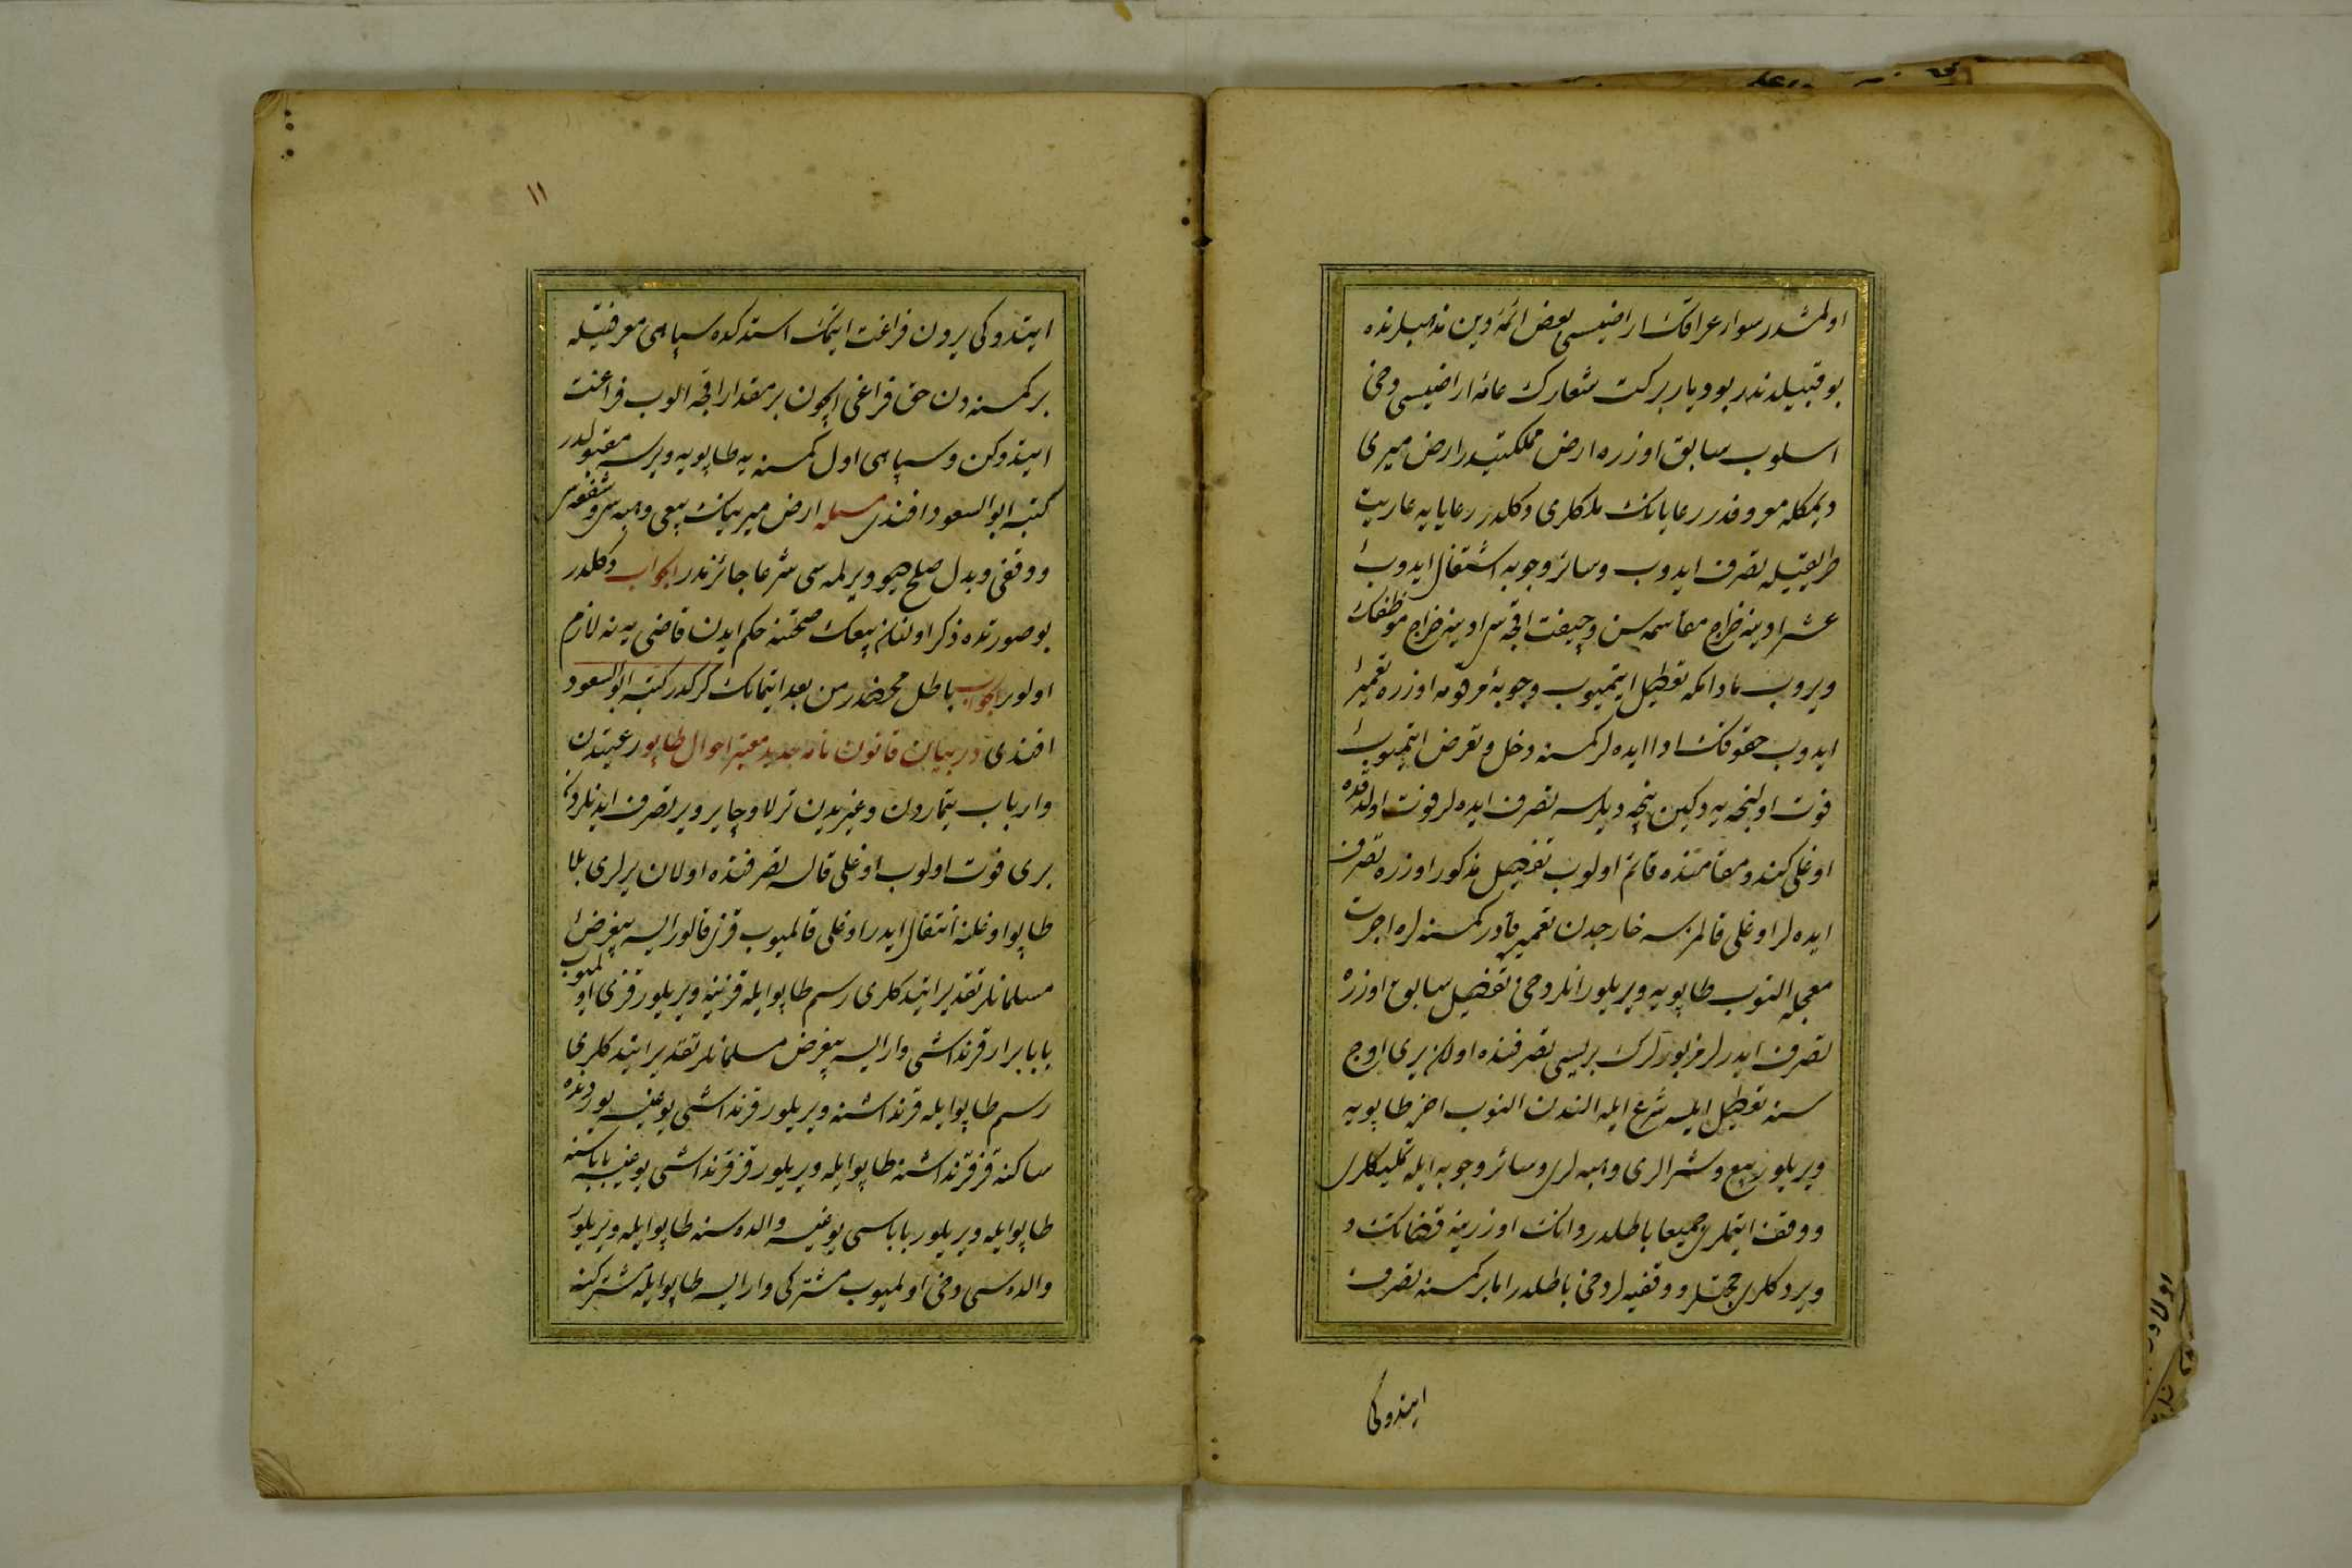 اولمشدر سواد عراقك اراضیسی بعض ائمۀ دین مذهبلرنده
بو قبیلدندر بو دیار بركت شعارك عامۀ اراضیسی دخی
اسلوب سابق اوزره ارض مملكتدر ارض میری
دیمكله معروفدر رعایانك ملكلری دكلدر رعایایه عاریت
طریقیله تصرف ایدوب وسائر وجوبه اشتغال ایدوب
عشر ادینه خراج مقاسمه سن وچیفت اقچه سی ادینه خراج موظفك
ویروب مادامكه تعطیل ایتمیوب وجوبۀ مرقومه اوزره تعمیر
ایدوب حقوقك ادا ایده لر كمسنه دخل وتعرض ایتمیوب
فوت اولنجه یه دكین نیجه دیلرسه تصرف ایده لر فوت اولدقده
اوغلی كندو مقامنده قائم اولوب تفصیل مذكور اوزره تصرف
ایده لر اوغلی قالمزسه خارجدن تعمیره قادر كمسنه لره اجرت
معجله النوب طاپویه ویریلور انلر دخی تفصیل سابق اوزره
تصرف ایدرلر مزبورلرك بریسی تصرفنده اولان یری اوچ
سنه تعطیل ایلسه شرع ایله الندن النوب اخره طاپویه
ویریلور بیع وشرالری وهبه لری وسائر وجوبه ایله تملیكلری
ووقف ایتملری جمیعا باطلدر وانك اوزرینه قضاتك
ویردكلری حجتلر ووقفیه لر دخی باطلدر اما بر كمسنه تصرف
ایتدوكی
١١
ایتدوكی یردن فراغت ایتمك استدكده سپاهی معرفتیله
بر كمسنه دن حق فراغی ایچون بر مقدار اقچه الوب فراغت
ایتدوكن وسپاهی اول كمسنه یه طاپویه ویرسه مقبولدر
كتبه ابو السعود افندی مسئله ارض میریه نك بیعی وهبه سی وشفعه سی
ووقفی وبدل صلح هبو ویرلمه سی شرعا جائزندر الجواب دكلدر
بو صورتده ذكر اولنان بیعك صحتنه حكم ایدن قاضی یه نه لازم
اولور الجواب باطل محضدر من بعد ایتمامك كركدر كتبه ابو السعود
افندی در بیان قانون نامه جدید معتبر احوال طاپو رعیتدن
وارباب تیماردن وغیریدن ترلا وچایر ویر تصرف ایدنلردن
بری فوت اولوب اوغلی قالسه تصرفنده اولان یرلری بلا
طاپو اوغلنه انتقال ایدر اوغلی قالمیوب قزی قالورایسه بیغرض
مسلمانلر تقدیر ایتدكلری رسم طاپو ایله قزینه ویریلور قزی اولمیوب
بابا بر ار قرنداشی وارایسه بیغرض مسلمانلر تقدیر ایتدكلری
رسم طاپو ایله قرنداشنه ویریلور قرنداشی یوغیسه یورد نده
ساكنه قز قرنداشنه طاپو ایله ویریلور قز قرنداشی یوغیسه باباسنه
طاپو ایله ویریلور باباسی یوغیسه والده سنه طاپو ایله ویریلور
والده سی دخی اولمیوب مشتركی وارایسه طاپو ایله مشتركنه